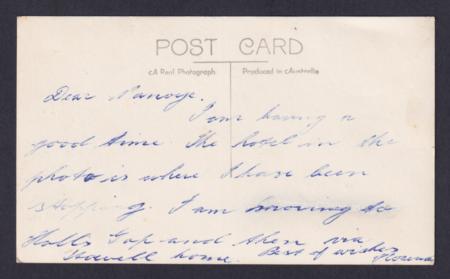 POST CARD
A Real Photograph
Produced in Australia
Dear
I am having a
good time The hotel in the
photo is where I have been
stopping. I am moving to
Halls Gap and then via
Stawell home. Best of wishes